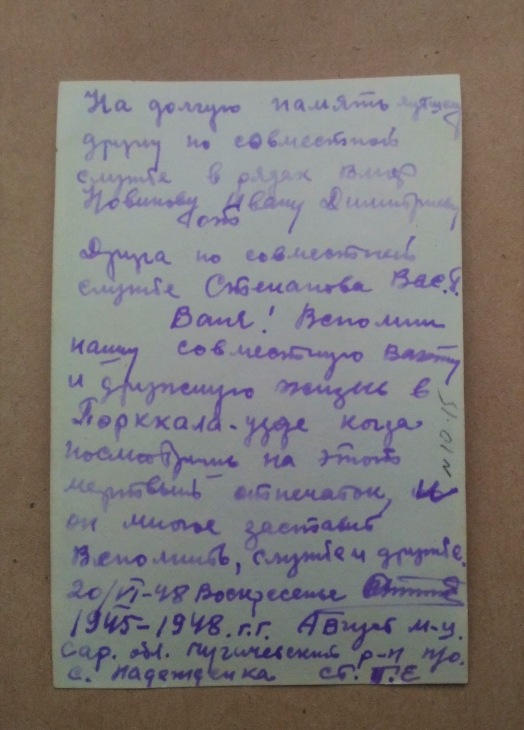 На долгую память лутшему
другу по совместной
службе в рядах ВМФ
Новикову Ивану Димитриеву
от
Друга по совместной
службе Степанова Вас.
Ваня! Вспомни
нашу совместную Вахту
и дружную жизнь в
Порккала-удде когда
посмотришь на этот
мертвый отпечаток, и
он многое заставит
Вспомнить, службе и дружбе.
20/VI-48 Воскресенье
1945-1948.г.г. Август м-ц.
Сар. обл. р-н п/о.
с. Надеждинка ст.
N 10.15